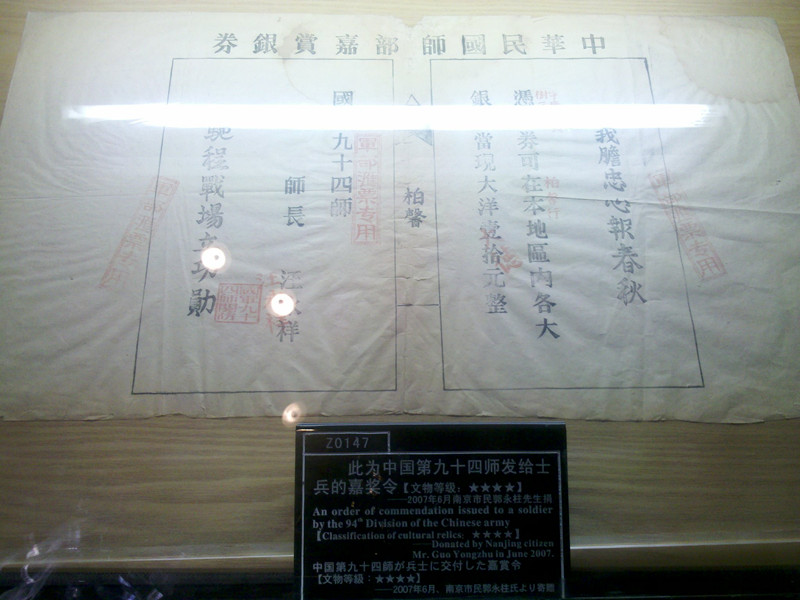 中華民國師部嘉賞銀券
我膽忠心報春秋
憑券可在本地區內各大
銀當現大洋壹拾元整
柏馨
國九十四師
師長 江祥
馳程戰場立功勛
軍部滙票专用
Z0147
此为中国第九十四师发给士
兵的嘉奖令【文物等级：★★★★】
——2007年6月南京市民郭永柱先生捐
An order of commendation issued to a soldier
by the 94th Division of the Chinese army
【Classification of cultural relics: ★★★★】
——Donated by Nanjing citizen
Mr. Guo Yongzhu in June 2007.
中国第九十四師が兵士に交付した嘉賞令
【文物等級：★★★★】
——2007年6月、南京市民郭永柱氏より寄贈